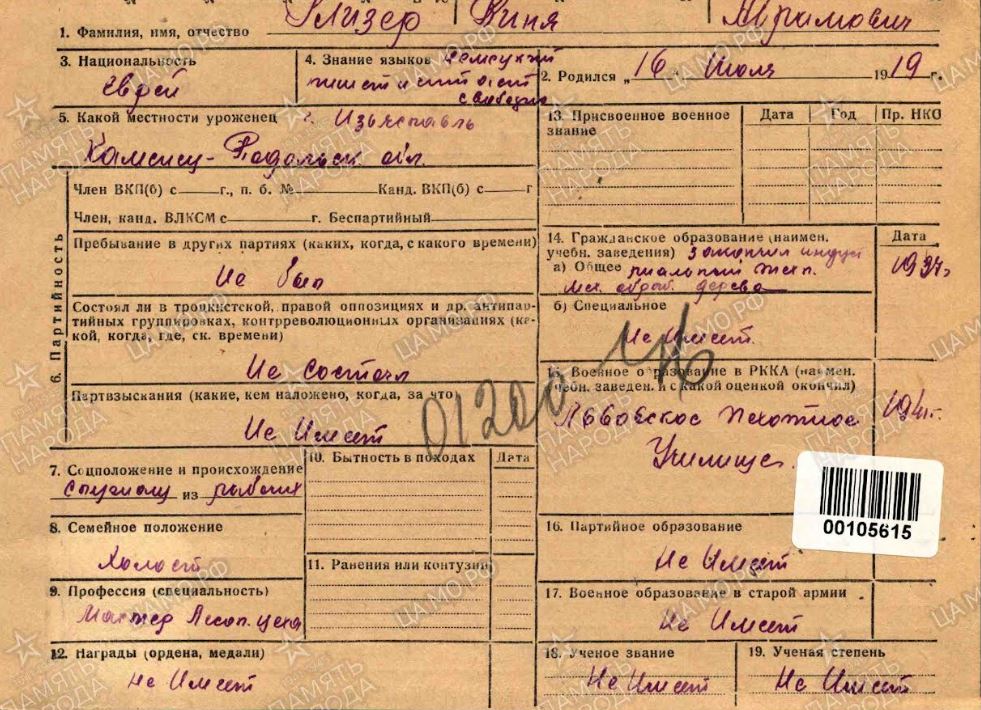 1. Фамилия, имя, отчество Глизер Киня Аврамович
3. Национальность
еврей
4. Знание языков немецкий
пишет и читает
свободно
2. Родился „16“ Июля 1919 г.
5. Какой местности уроженец г. Изъяславль
Каменец-Подольск обл.
6. Партийность
Член ВКП(б) с г., п. б. № Канд. ВКП(б) с г
Член, канд. ВЛКСМ с г. Беспартийный
Пребывание в других партиях (каких, когда, с какого времени)
Не был
Состоял ли в троцкистской, правой оппозициях и др. антипар-
тийных группировках, контрреволюционных организациях (ка-
кой, когда, где, ск. времени)
Не состоял
Партвзыскания (какие, кем наложено, когда, за что)
Не Имеет
7. Соцположение и происхождение
служащ из рабочих
8. Семейное положение
Холост
9. Профессия (специальность)
Мастер Лесоп. цеха
10. Бытность в походах Дата
11. Ранения или контузии
12. Награды (ордена, медали)
не Имеет
13. Присвоенное военное
звание
Дата Год Пр. НКО
14. Гражданское образование (наимен.
учебн. заведения) закончил индус
а) Общее триальный техн.
мех. обраб. дерева
Дата
1937г
б) Специальное
Не Имеет.
15. Военное образование в РККА (наимен.
учебн. заведен. и с какой оценкой окончил)
Львовское Пехотное
Училище.
1941г.
01200
00105615
16. Партийное образование
Не Имеет
17. Военное образование в старой армии
Не Имеет
18. Ученое звание
Не Имеет
19. Ученая степень
Не Имеет
ПАМЯТЬ НАРОДА
ЦАМО.РФ